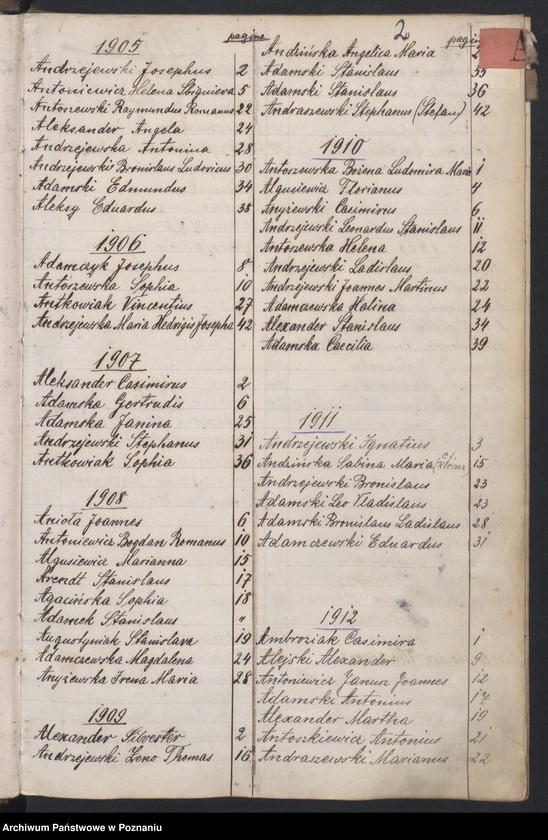 pagina
1905
Andrzejewski Josephus 2
Antoniewicz Helena Sbignieva 5
Antoszewski Raymundus Romanus 22
Aleksander Angela 24
Andrzejewska Antonina 28
Andrzejewski Bronislaus Ludovicus 30
Adamski Edmundus 34
Aleksy Eduardus 38
1906
Adamczyk Josephus 8
Antoszewska Sophia 10
Antkowiak Vincentius 27
Andrzejewska Maria Hedvigis Josepha 42
1907
Aleksander Casimirus 2
Adamska Gertrudis 6
Adamska Janina 25
Andrzejewski Stephanus 31
Antkowiak Sophia 36
1908
Anioła Joannes 6
Antoniewicz Bogdan Romanus 10
Algusiewicz Marianna 15
Arendt Stanislaus 17
Agacińska Sophia 18
Adamek Stanislaus "
Augustyniak Stanislava 19
Adamczewska Magdalena 24
Anyżewska Irena Maria 28
1909
Alexander Silvester 2
Andrzejewski Zeno Thomas 16
2
pagina
A
Andzińska Angelica Maria
Adamski Stanislaus 33
Adamski Stanislaus 36
Andraszewski Stephanus (Stefan) 42
1910
Antoszewska Bożena Ludomira Maria 1
Algusiewicz Florianus 4
Anyżewski Casimirus 6
Andrzejewski Leonardus Stanislaus 11
Antoszewska Helena 12
Andrzejewski Ladislaus 20
Andrzejewski Joannes Martinus 22
Adamczewska Halina 24
Alexander Stanislaus 34
Adamska Caecilia 39
1911
Andrzejewski Ignatius 3
Andzińska Sabina Maria 15
Andrzejewski Bronislaus 23
Adamski Leo Vladislaus 23
Adamski Bronislaus Ladislaus 28
Adamczewski Eduardus 31
1912
Ambroziak Casimira 1
Alejski Alexander 9
Antoniewicz Janusz Joannes 12
Adamski Antonius 17
Alexander Martha 19
Antoszkiewicz Antonius 21
Andraszewski Marianus 22
Archiwum Państwowe w Poznaniu